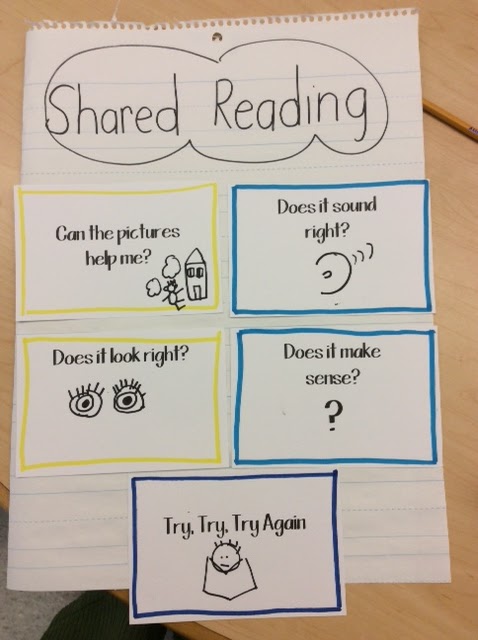 Shared Reading
Can the pictures
help me?
Does it sound
right?
Does it look right?
Does it make
sense?
?
Try, Try, Try Again